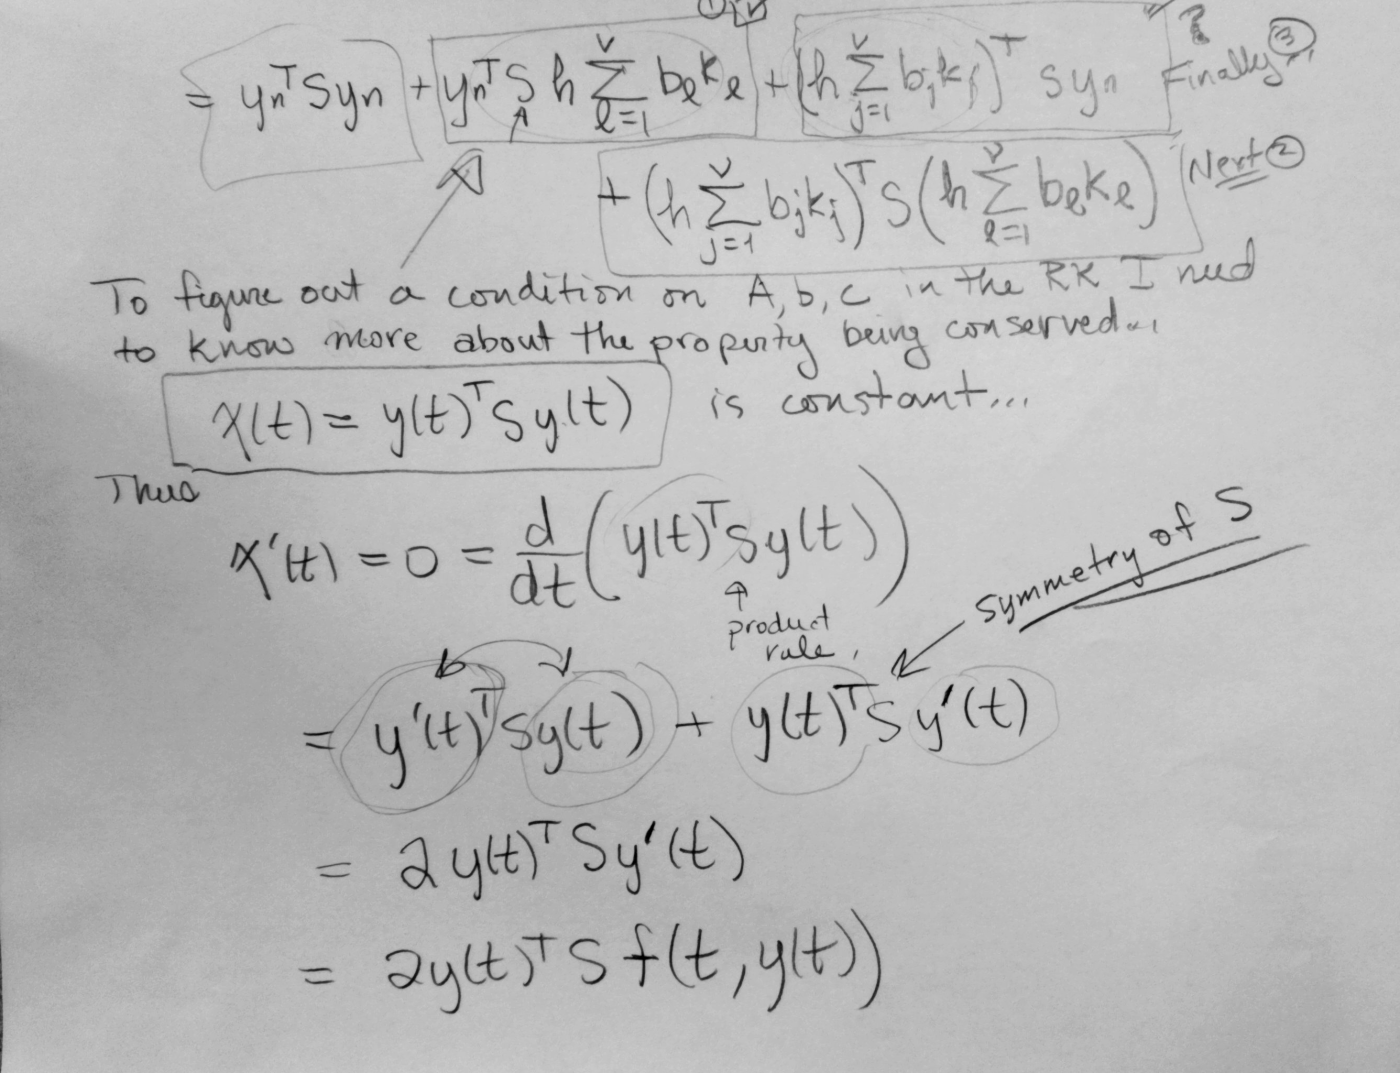 ①
= yₙᵀSyₙ + yₙᵀS h ∑_{ℓ=1}^{ν} b_ℓ k_ℓ + (h ∑_{j=1}^{ν} b_j k_j)ᵀ S yₙ Finally ③
+ (h ∑_{j=1}^{ν} b_j k_j)ᵀ S (h ∑_{ℓ=1}^{ν} b_ℓ k_ℓ) Next ②
To figure out a condition on A, b, c in the RK I need
to know more about the property being conserved...
χ(t) = y(t)ᵀSy(t) is constant...
Thus
χ'(t) = 0 = d/dt (y(t)ᵀSy(t))
↑
product
rule
symmetry of S
= y'(t)ᵀSy(t) + y(t)ᵀSy'(t)
= 2y(t)ᵀSy'(t)
= 2y(t)ᵀSf(t,y(t))